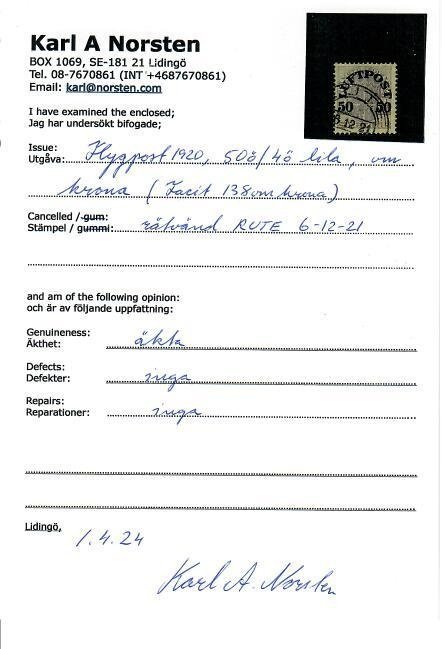 Karl A Norsten
BOX 1069, SE-181 21 Lidingö
Tel. 08-7670861 (INT +4687670861)
Email: karl@norsten.com
LUFTPOST
50 50
6-12-21
I have examined the enclosed;
Jag har undersökt bifogade;
Issue:
Utgåva: Flygpost 1920, 50ö/4ö lila, vm
krona (Facit 138vm krona)
Cancelled /gum:
Stämpel / gummi: rätvänd RUTE 6-12-21
and am of the following opinion:
och är av följande uppfattning:
Genuineness:
Äkthet: äkta
Defects:
Defekter: inga
Repairs:
Reparationer: inga
Lidingö,
1.4.24
Karl A. Norsten